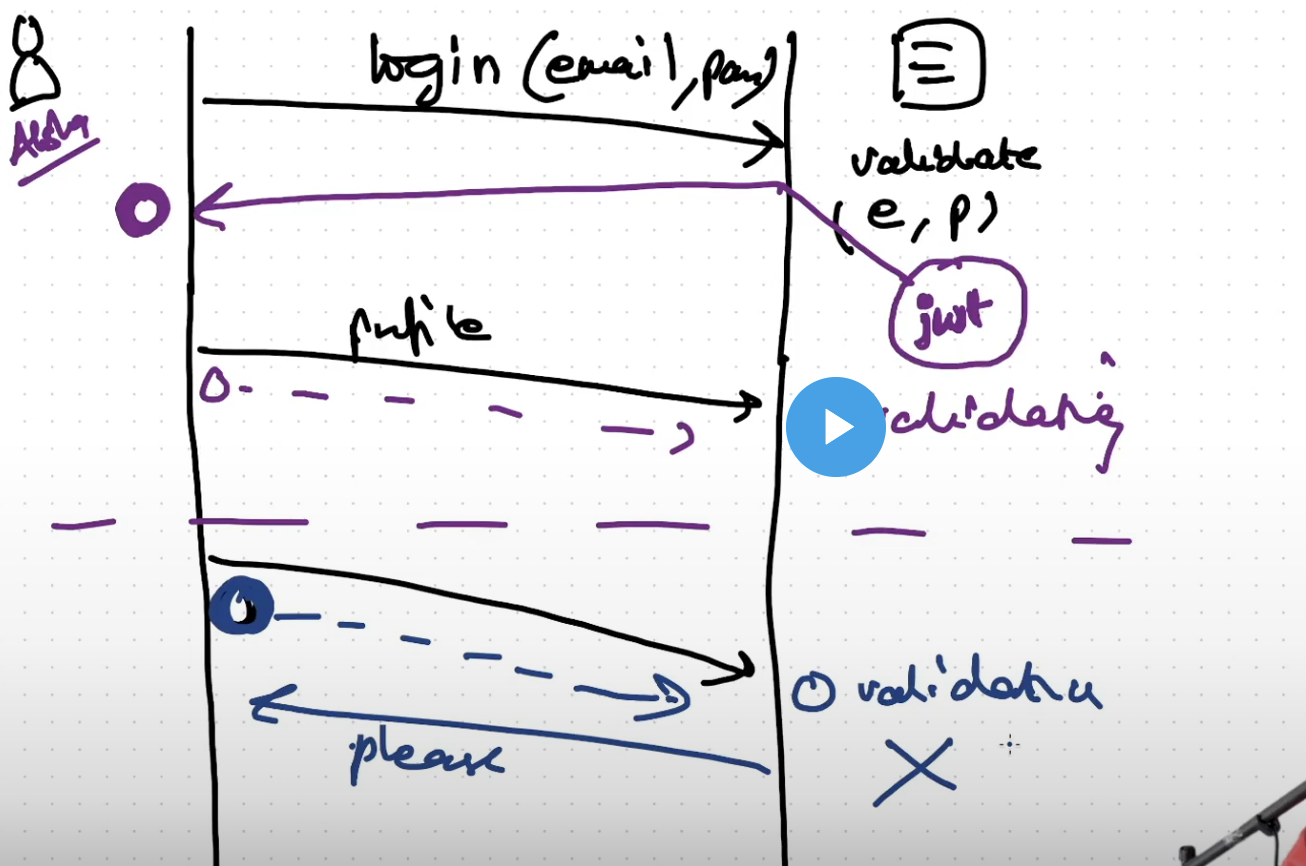 login (email, pass)
validate
(e, p)
jwt
profile
validating
validation
please